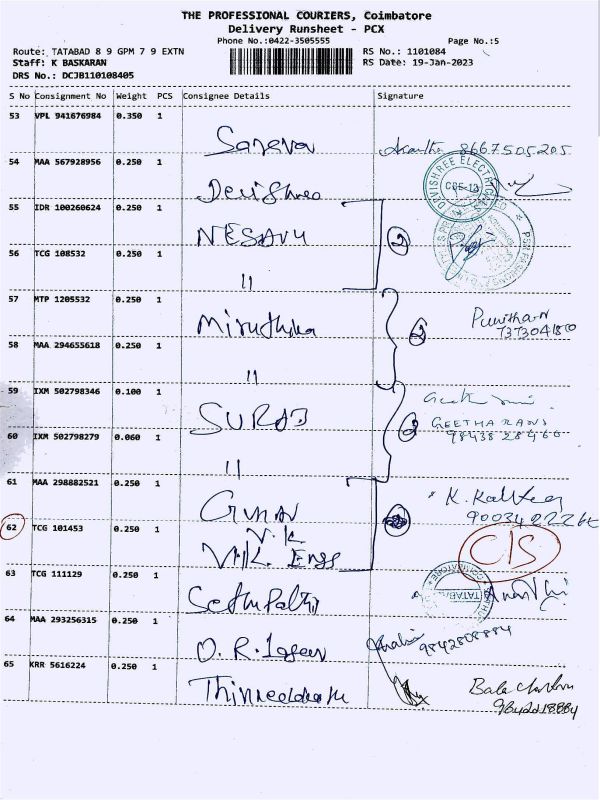 THE PROFESSIONAL COURIERS, Coimbatore
Delivery Runsheet - PCX
Phone No.:0422-3505555 Page No.:5
Route: TATABAD 8 9 GPM 7 9 EXTN RS No.: 1101084
Staff: K BASKARAN RS Date: 19-Jan-2023
DRS No.: DCJB110108405
S No Consignment No Weight PCS Consignee Details Signature
53 VPL 941676984 0.350 1
8667505205
54 MAA 567928956 0.250 1
DEVISHREE ELECTRICALS
CBE-12
Devishree
55 IDR 100260624 0.250 1
NESAVU
2
56 TCG 108532 0.250 1
"
57 MTP 1205532 0.250 1
Miruthika
2
58 MAA 294655618 0.250 1
"
59 IXM 502798346 0.100 1
SURAJ
2
GEETHARANI
60 IXM 502798279 0.060 1
9843828466
"
61 MAA 298882521 0.250 1
62 TCG 101453 0.250 1
V.K
C/S
V.K. Engg
63 TCG 111129 0.250 1
TATABAD
64 MAA 293256315 0.250 1
9842808884
65 KRR 5616224 0.250 1